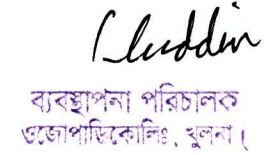 ব্যবস্থাপনা পরিচালক
ওজোপাডিকোলিঃ, খুলনা।